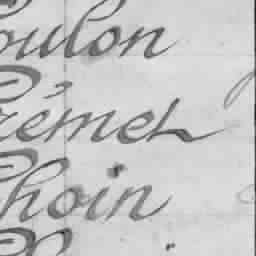 oulon
rémeh
hoin